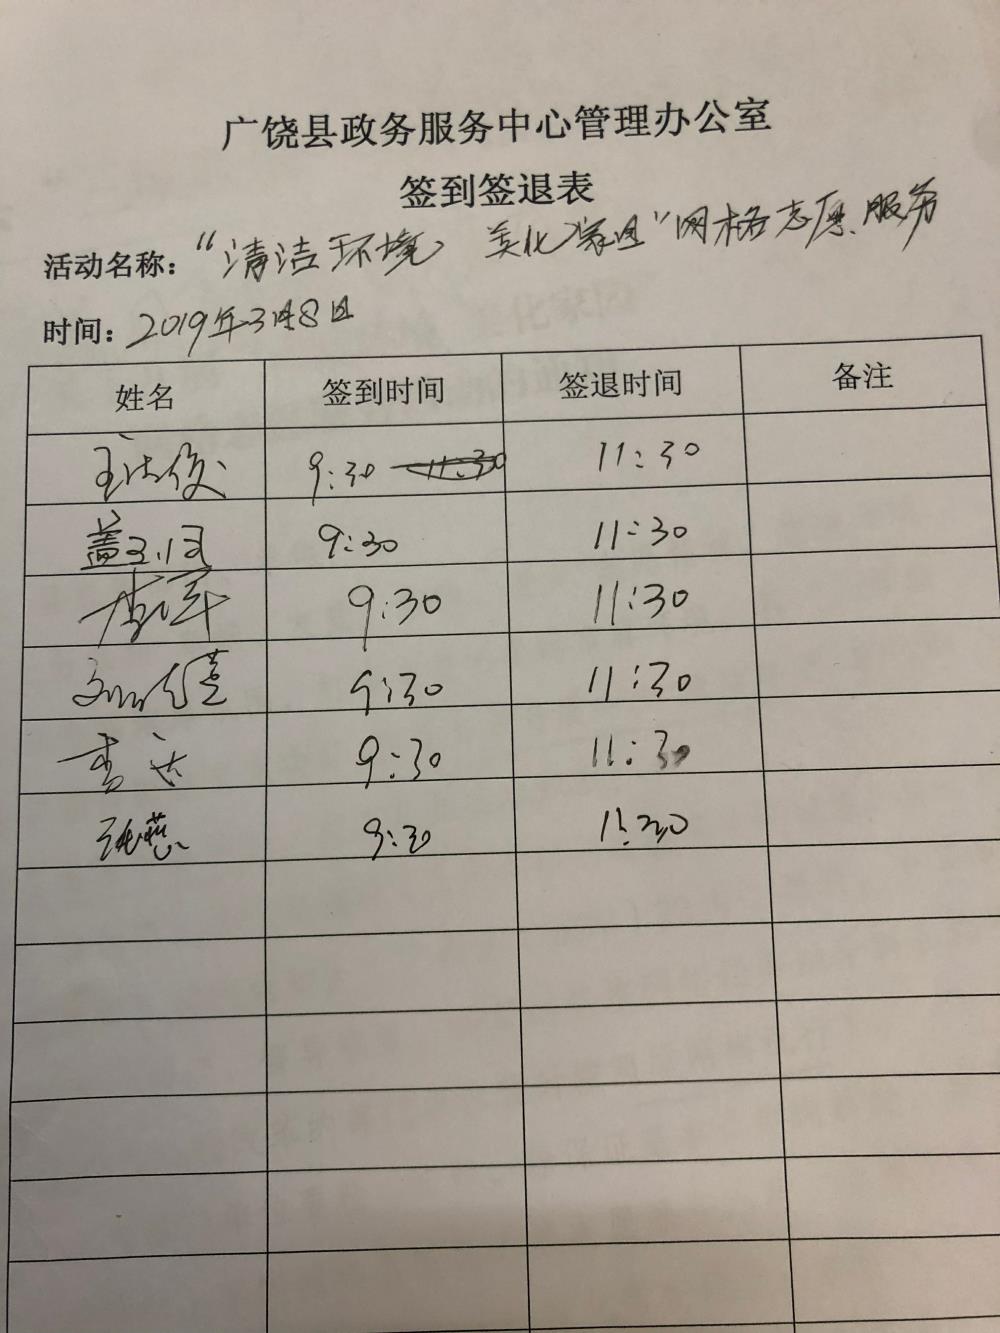 广饶县政务服务中心管理办公室
签到签退表
活动名称：“清洁环境 美化家园”网格志愿服务
时间：2019年3月8日
姓名 签到时间 签退时间 备注
9:30 11:30 11:30
盖 9:30 11:30
9:30 11:30
9:30 11:30
李 9:30 11:30
张 9:30 11:30